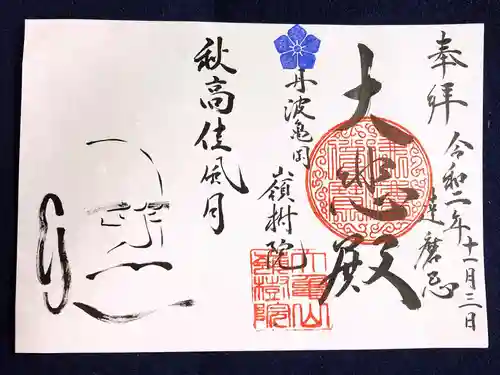 奉拝
令和二年十一月三日
達磨忌
大悲殿
丹波亀岡
嶺樹院
秋高佳風月